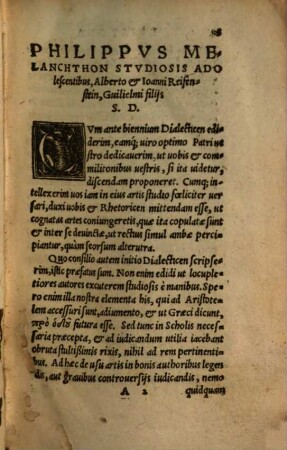 PHILIPPVS ME
LANCHTHON STVDIOSIS ADO
lescentibus, Alberto & Ioanni Reifen-
stein, Guilielmi filijs
S. D.
CVm ante biennium Dialecticen edi
derim, eamq́; uiro optimo Patri ue
stro dedicauerim, ut uobis & com
militonibus uestris, si ita uidetur,
discendam proponeret. Cumq; in-
tellexerim uos iam in eius artis studio fœliciter uer
sari, duxi uobis & Rhetoricen mittendam esse, ut
cognatas artes coniungeretis, quæ ita copulatæ sunt
& inter se deuinctæ, ut rectius simul ambæ perci-
piantur, quàm seorsum alterutra.
Quo consilio autem initio Dialecticen scripse-
rim, istic præfatus sum. Non enim edidi ut locuple-
tiores autores excuterem studiosis è manibus. Spe-
ro enim illa nostra elementa his, qui ad Aristote
lem accessuri sunt, adiumento, & ut Græci dicunt,
πρὸ ὁδοῦ futura esse. Sed tunc in Scholis neces-
saria præcepta, & ad iudicandum utilia iacebant
obruta stultißimis rixis, nihil ad rem pertinenti-
bus. Ad hæc de usu artis in bonis authoribus legen
dis, aut grauibus controuersijs iudicandis, nemo
A 2 quidquam